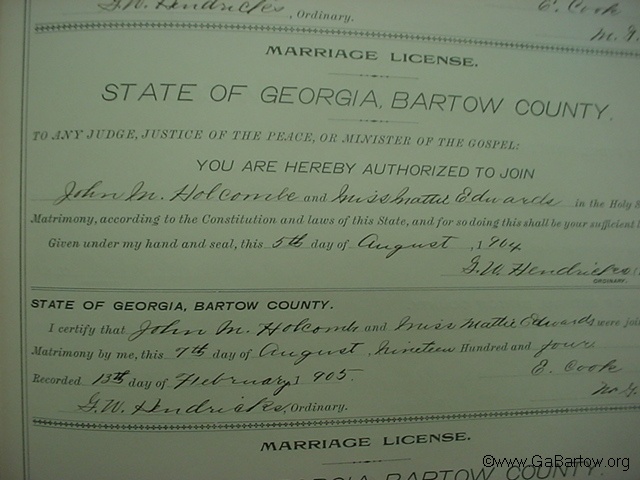 G.W. Hendricks, Ordinary.
E. Cook
M. G.
MARRIAGE LICENSE.
STATE OF GEORGIA, BARTOW COUNTY.
TO ANY JUDGE, JUSTICE OF THE PEACE, OR MINISTER OF THE GOSPEL:
YOU ARE HEREBY AUTHORIZED TO JOIN
John M. Holcombe and Miss Mattie Edwards in the Holy S
Matrimony, according to the Constitution and laws of this State, and for so doing this shall be your sufficient
Given under my hand and seal, this 5th day of August, 1904
G.W. Hendricks
ORDINARY.
STATE OF GEORGIA, BARTOW COUNTY.
I certify that John M. Holcomb and Miss Mattie Edwards were joi
Matrimony by me, this 7th day of August, Nineteen Hundred and four.
E. Cook
Recorded 13th day of February 1905.
G.W. Hendricks, Ordinary.
MARRIAGE LICENSE.
GIA, BARTOW COUNTY.
©www.GaBartow.org